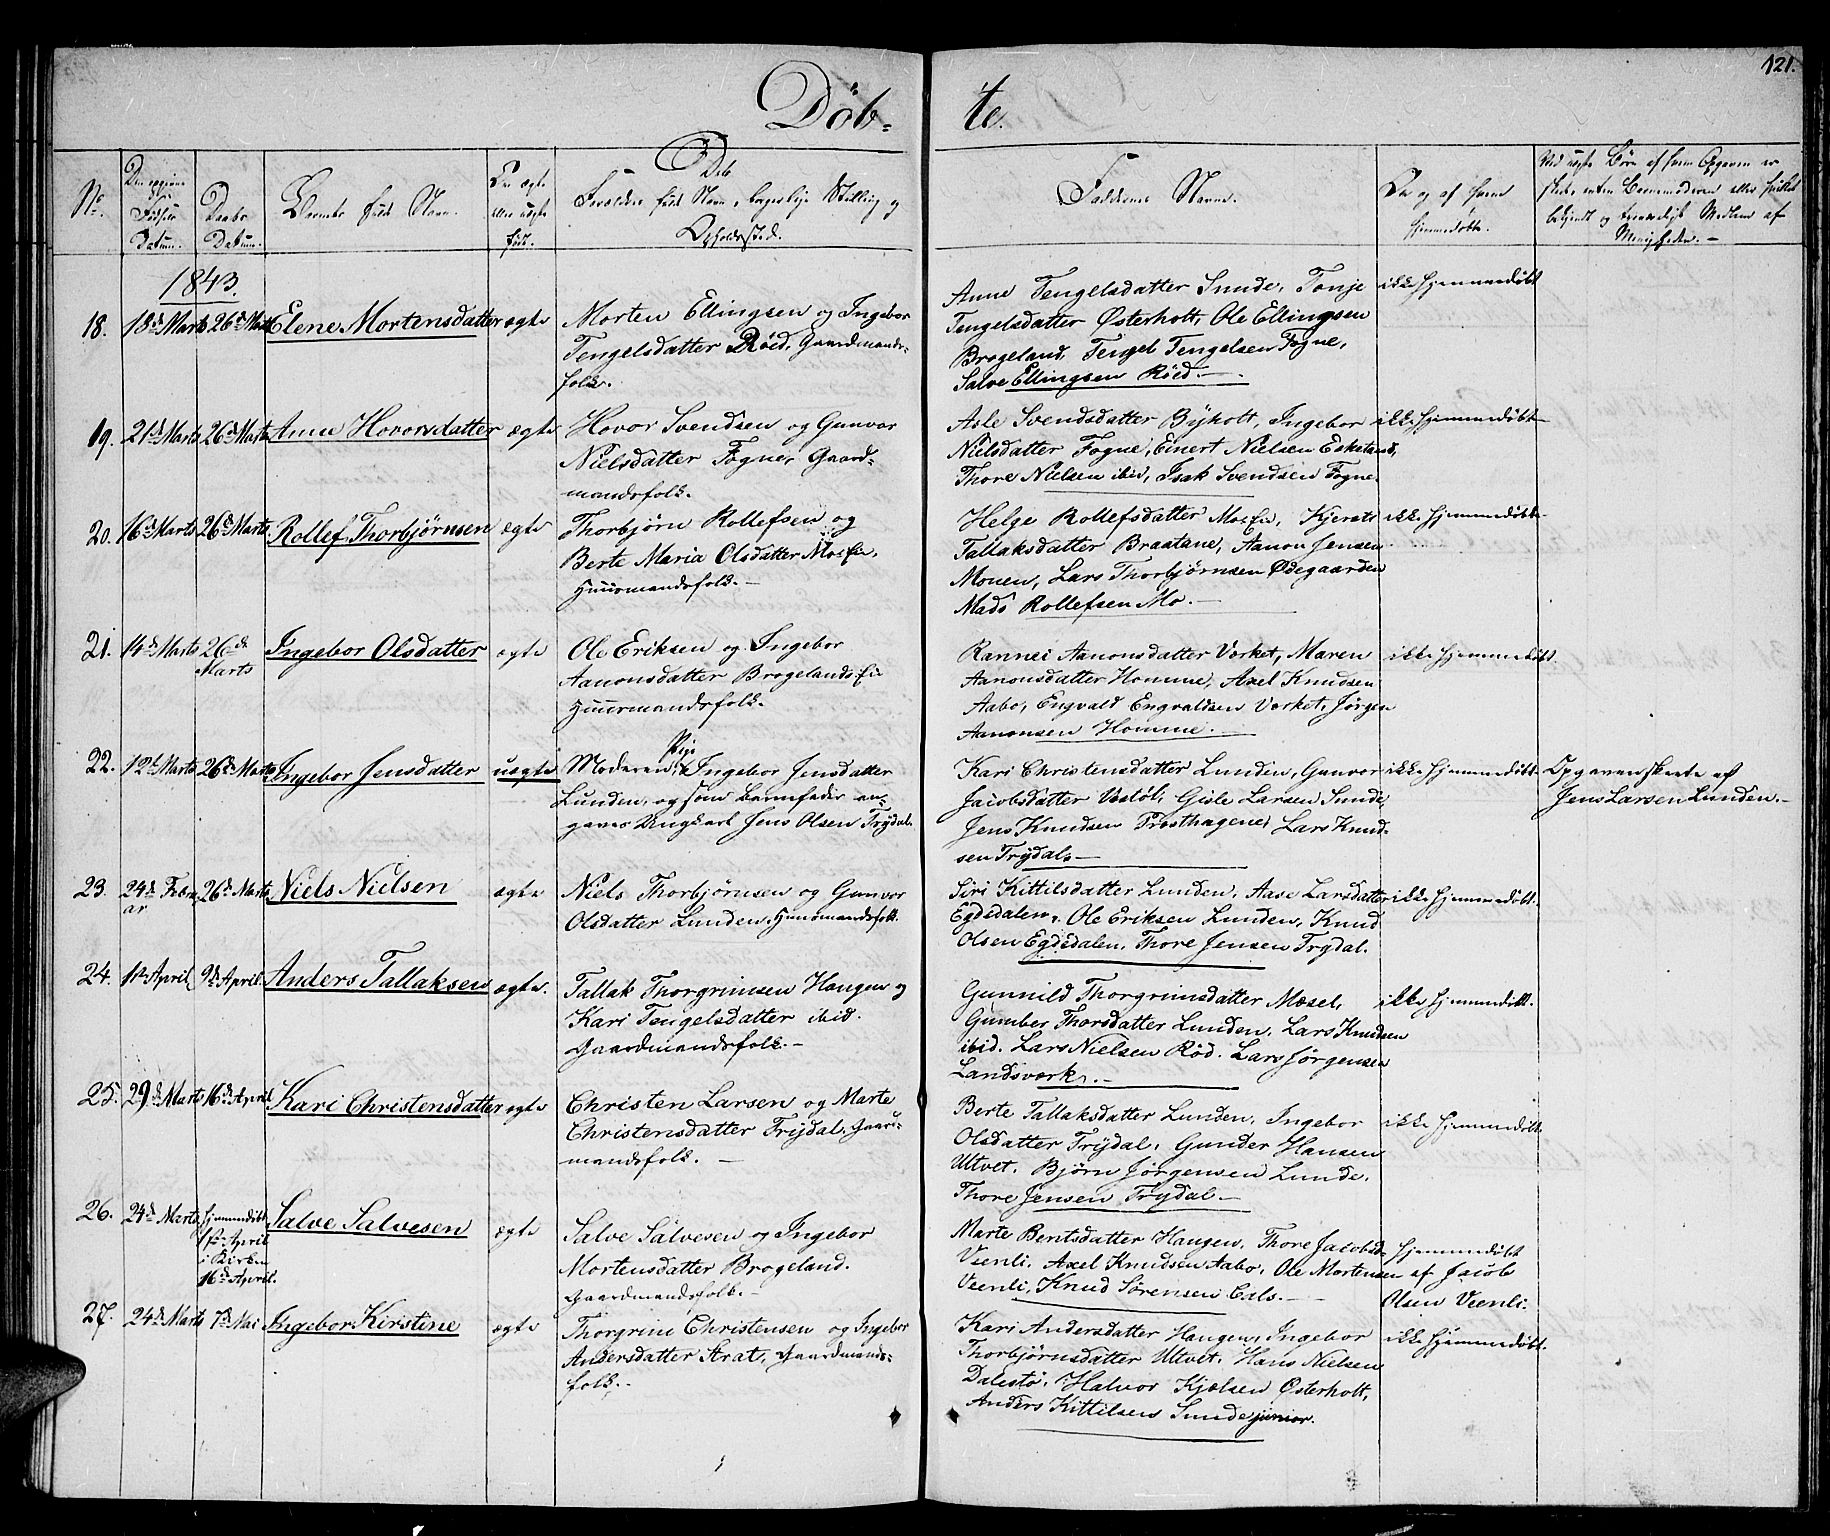 121.
Døb- te.
No.
Den opgivne Fødsels Datum.
Daabs Datum.
Barnets fulde Navn.
Om ægte eller uægte født.
Forældres fulde Navn, borgerlige Stilling og Opholdssted.
Faddernes Navne.
Om og af hvem hjemmedøbt.
1843.
18. 18de Marts 26de Marts Elene Mortensdatter ægte
Morten Ellingsen og Ingebor
Tengelsdatter Røed, Gaardmands-
folk.
Anne Tengelsdatter Sunde, Tonje
Tengelsdatter Østerholt, Ole Ellingsen
Brogeland, Tengel Tengelsen Fogne,
Salve Ellingsen Røed.
ikke hjemmedøbt
19. 21de Marts 26de Marts Anne Hovorsdatter ægte
Hovor Svendsen og Gunvor
Nielsdatter Fogne, Gaard-
mandsfolk.
Asle Svendsdatter Byholt, Ingebor
Nielsdatter Fogne, Einert Nielsen Eskeland,
Thore Nielsen ibid, Isak Svendsen Fogne.
ikke hjemmedøbt
20. 16de Marts 26de Marts Rollef Thorbjørnsen ægte
Thorbjørn Rollefsen og
Berte Maria Olsdatter Moeie,
Huusmandsfolk.
Helge Rollefsdatter Moeie, Kjersti
Tallaksdatter Braatane, Aanon Jensen
Monen, Lars Thorbjørnsen Ødegaarden
Mads Rollefsen Mo.
ikke hjemmedøbt
21. 14de Marts 26de Marts Ingebor Olsdatter ægte
Ole Eriksen og Ingebor
Aanonsdatter Brogelandseie
Huusmandsfolk.
Rannei Aanonsdatter Værket, Maren
Aanonsdatter Homme, Axel Knudsen
Aabo, Engvald Engvaldsen Værket, Jørgen
Aanonsen Homme.
ikke hjemmedøbt.
22. 12te Marts 26de Marts Ingebor Jensdatter uægte
Moderen, Pige Ingebor Jensdatter
Lunden, og som Barnefader an-
gaves Ungkarl Jens Olsen Trydal.
Kari Christensdatter Lunden, Gunvor
Jacobsdatter Vestøl, Gisle Larsen Sunde,
Jens Knudsen Frosthagene, Lars Knud-
sen Trydal.
ikke hjemmedøbt
Opgaven skeete af
Jens Larsen Lunden.
23. 24de Febru-
ar 26de Marts Niels Nielsen ægte
Niels Thorbjørnsen og Gunvor
Olsdatter Lunden, Huusmandsfolk.
Siri Kittilsdatter Lunden, Aase Larsdatter
Egdedalen, Ole Eriksen Lunden, Knud
Olsen Egdedalen, Thore Jensen Trydal.
ikke hjemmedøbt.
24. 1ste April 9de April. Anders Tallaksen ægte.
Tallak Thorgrimsen Haugen og
Kari Tengelsdatter ibid.
Gaardmandsfolk.
Gunnild Thorgrimsdatter Mæsel,
Gumber Thorsdatter Lunden, Lars Knudsen
ibid. Lars Nielsen Rød. Lars Jørgensen
Landsværk.
ikke hjemmedøbt.
25. 29de Marts 16de April Kari Christensdatter ægte
Christen Larsen og Marte
Christensdatter Trydal, Gaard-
mandsfolk.
Berte Tallaksdatter Lunden, Ingebor
Olsdatter Trydal, Gunder Hansen
Utvet. Bjørn Jørgensen Lunde.
Thore Jensen Trydal.
ikke hjemmedøbt
26. 24de Marts hjemmedøbt
1ste April
i Kirken
16de April. Salve Salvesen ægte
Salve Salvesen og Ingebor
Mortensdatter Brogeland.
Gaardmandsfolk.
Marte Bentsdatter Haugen, Thore Jacobsd.
Veenli, Axel Knudsen Aabo, Ole Mortensen
Veenli, Knud Sørensen Eals.
hjemmedøbt
af Jacob
Olsen Veenli.
27. 24de Marts 7de Mai Ingebor Kirstine ægte
Thorgrim Christensen og Ingebor
Andersdatter Strat, Gaardmands-
folk.
Kari Andersdatter Haugen, Ingebor
Thorbjørnsdatter Utvet. Hans Nielsen
Dalestø, Halvor Kjælsen Østerholt,
Anders Kittilsen Sunde junior.
ikke hjemmedøbt.